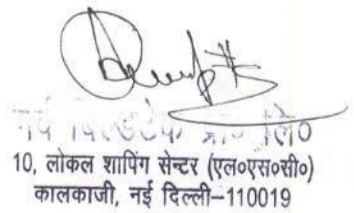 प्रा० लि०
10, लोकल शापिंग सेन्टर (एल०एस०सी०)
कालकाजी, नई दिल्ली-110019